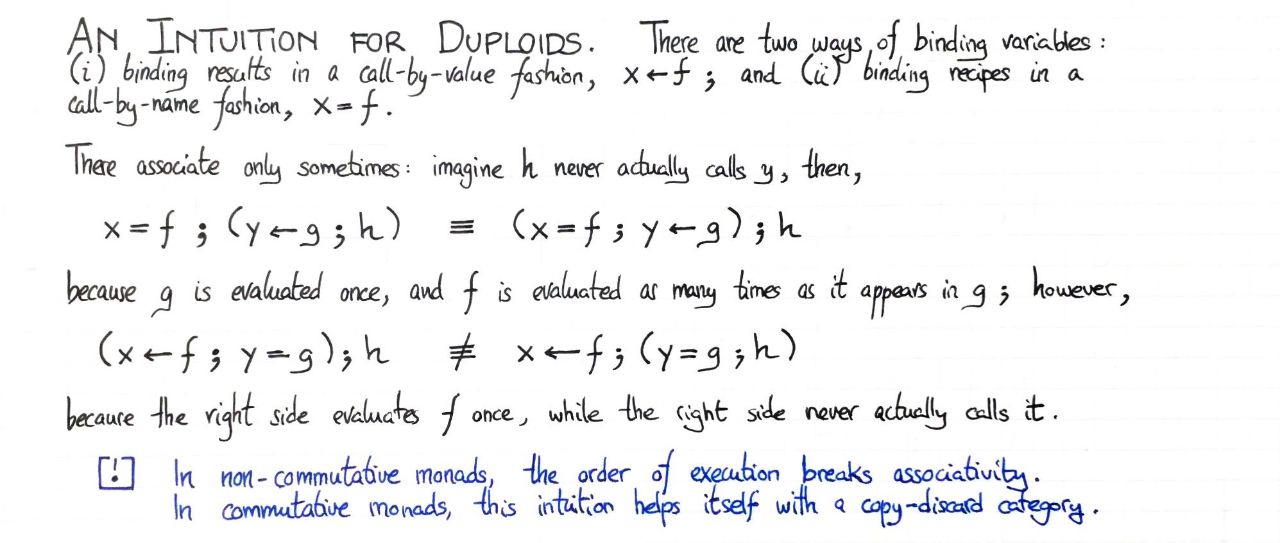 AN INTUITION FOR DUPLOIDS. There are two ways of binding variables:
(i) binding results in a call-by-value fashion, x ← f ; and (ii) binding recipes in a
call-by-name fashion, x = f.
These associate only sometimes: imagine h never actually calls y, then,
x = f ; (y ← g ; h) ≡ (x = f ; y ← g) ; h
because g is evaluated once, and f is evaluated as many times as it appears in g ; however,
(x ← f ; y = g) ; h ≢ x ← f ; (y = g ; h)
because the right side evaluates f once, while the right side never actually calls it.
[!] In non-commutative monads, the order of execution breaks associativity.
In commutative monads, this intuition helps itself with a copy-discard category.